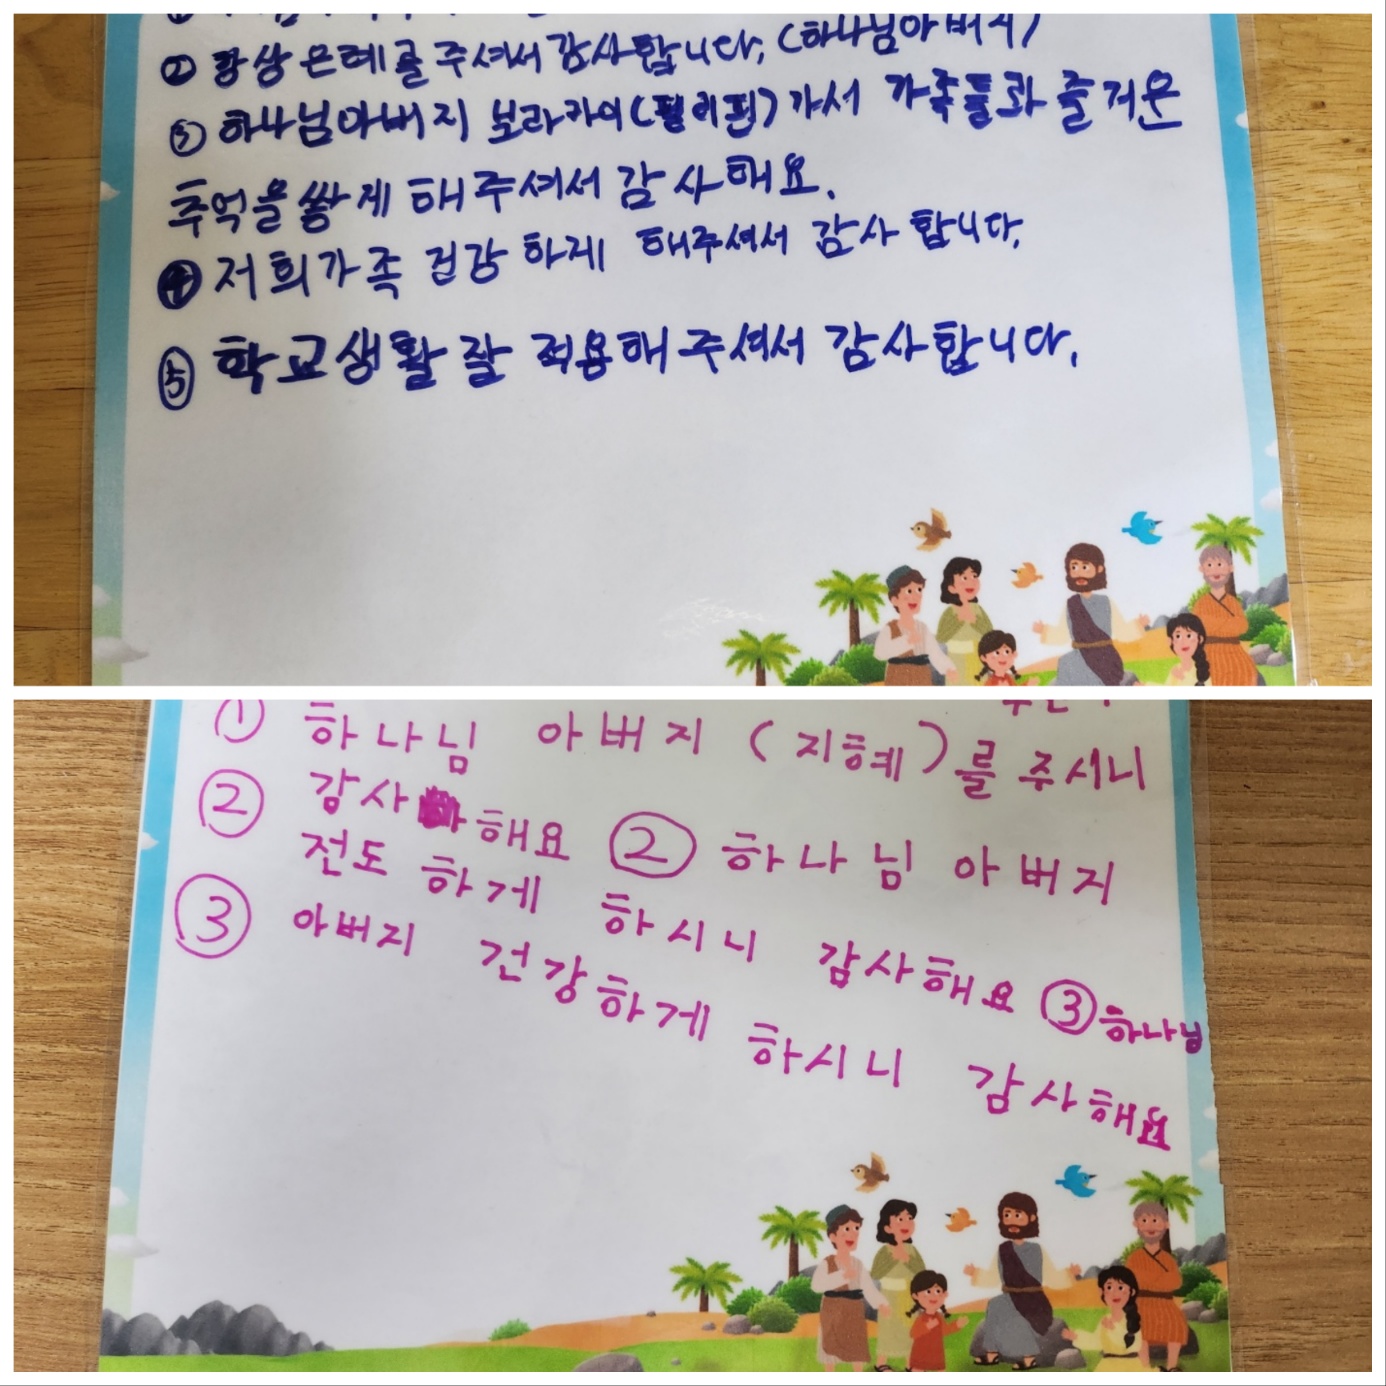 ② 항상 은혜를 주셔서 감사합니다, (하나님아버지)
③ 하나님아버지 보라카이(필리핀)가서 가족들과 즐거운
추억을 쌓게 해주셔서 감사해요.
④ 저희가족 건강하게 해주셔서 감사합니다.
⑤ 학교생활 잘 적용해주셔서 감사합니다.
① 하나님 아버지 (지혜)를 주시니
② 감사해요 ② 하나님 아버지
전도하게 하시니 감사해요 ③ 하나님
③ 아버지 건강하게 하시니 감사해요